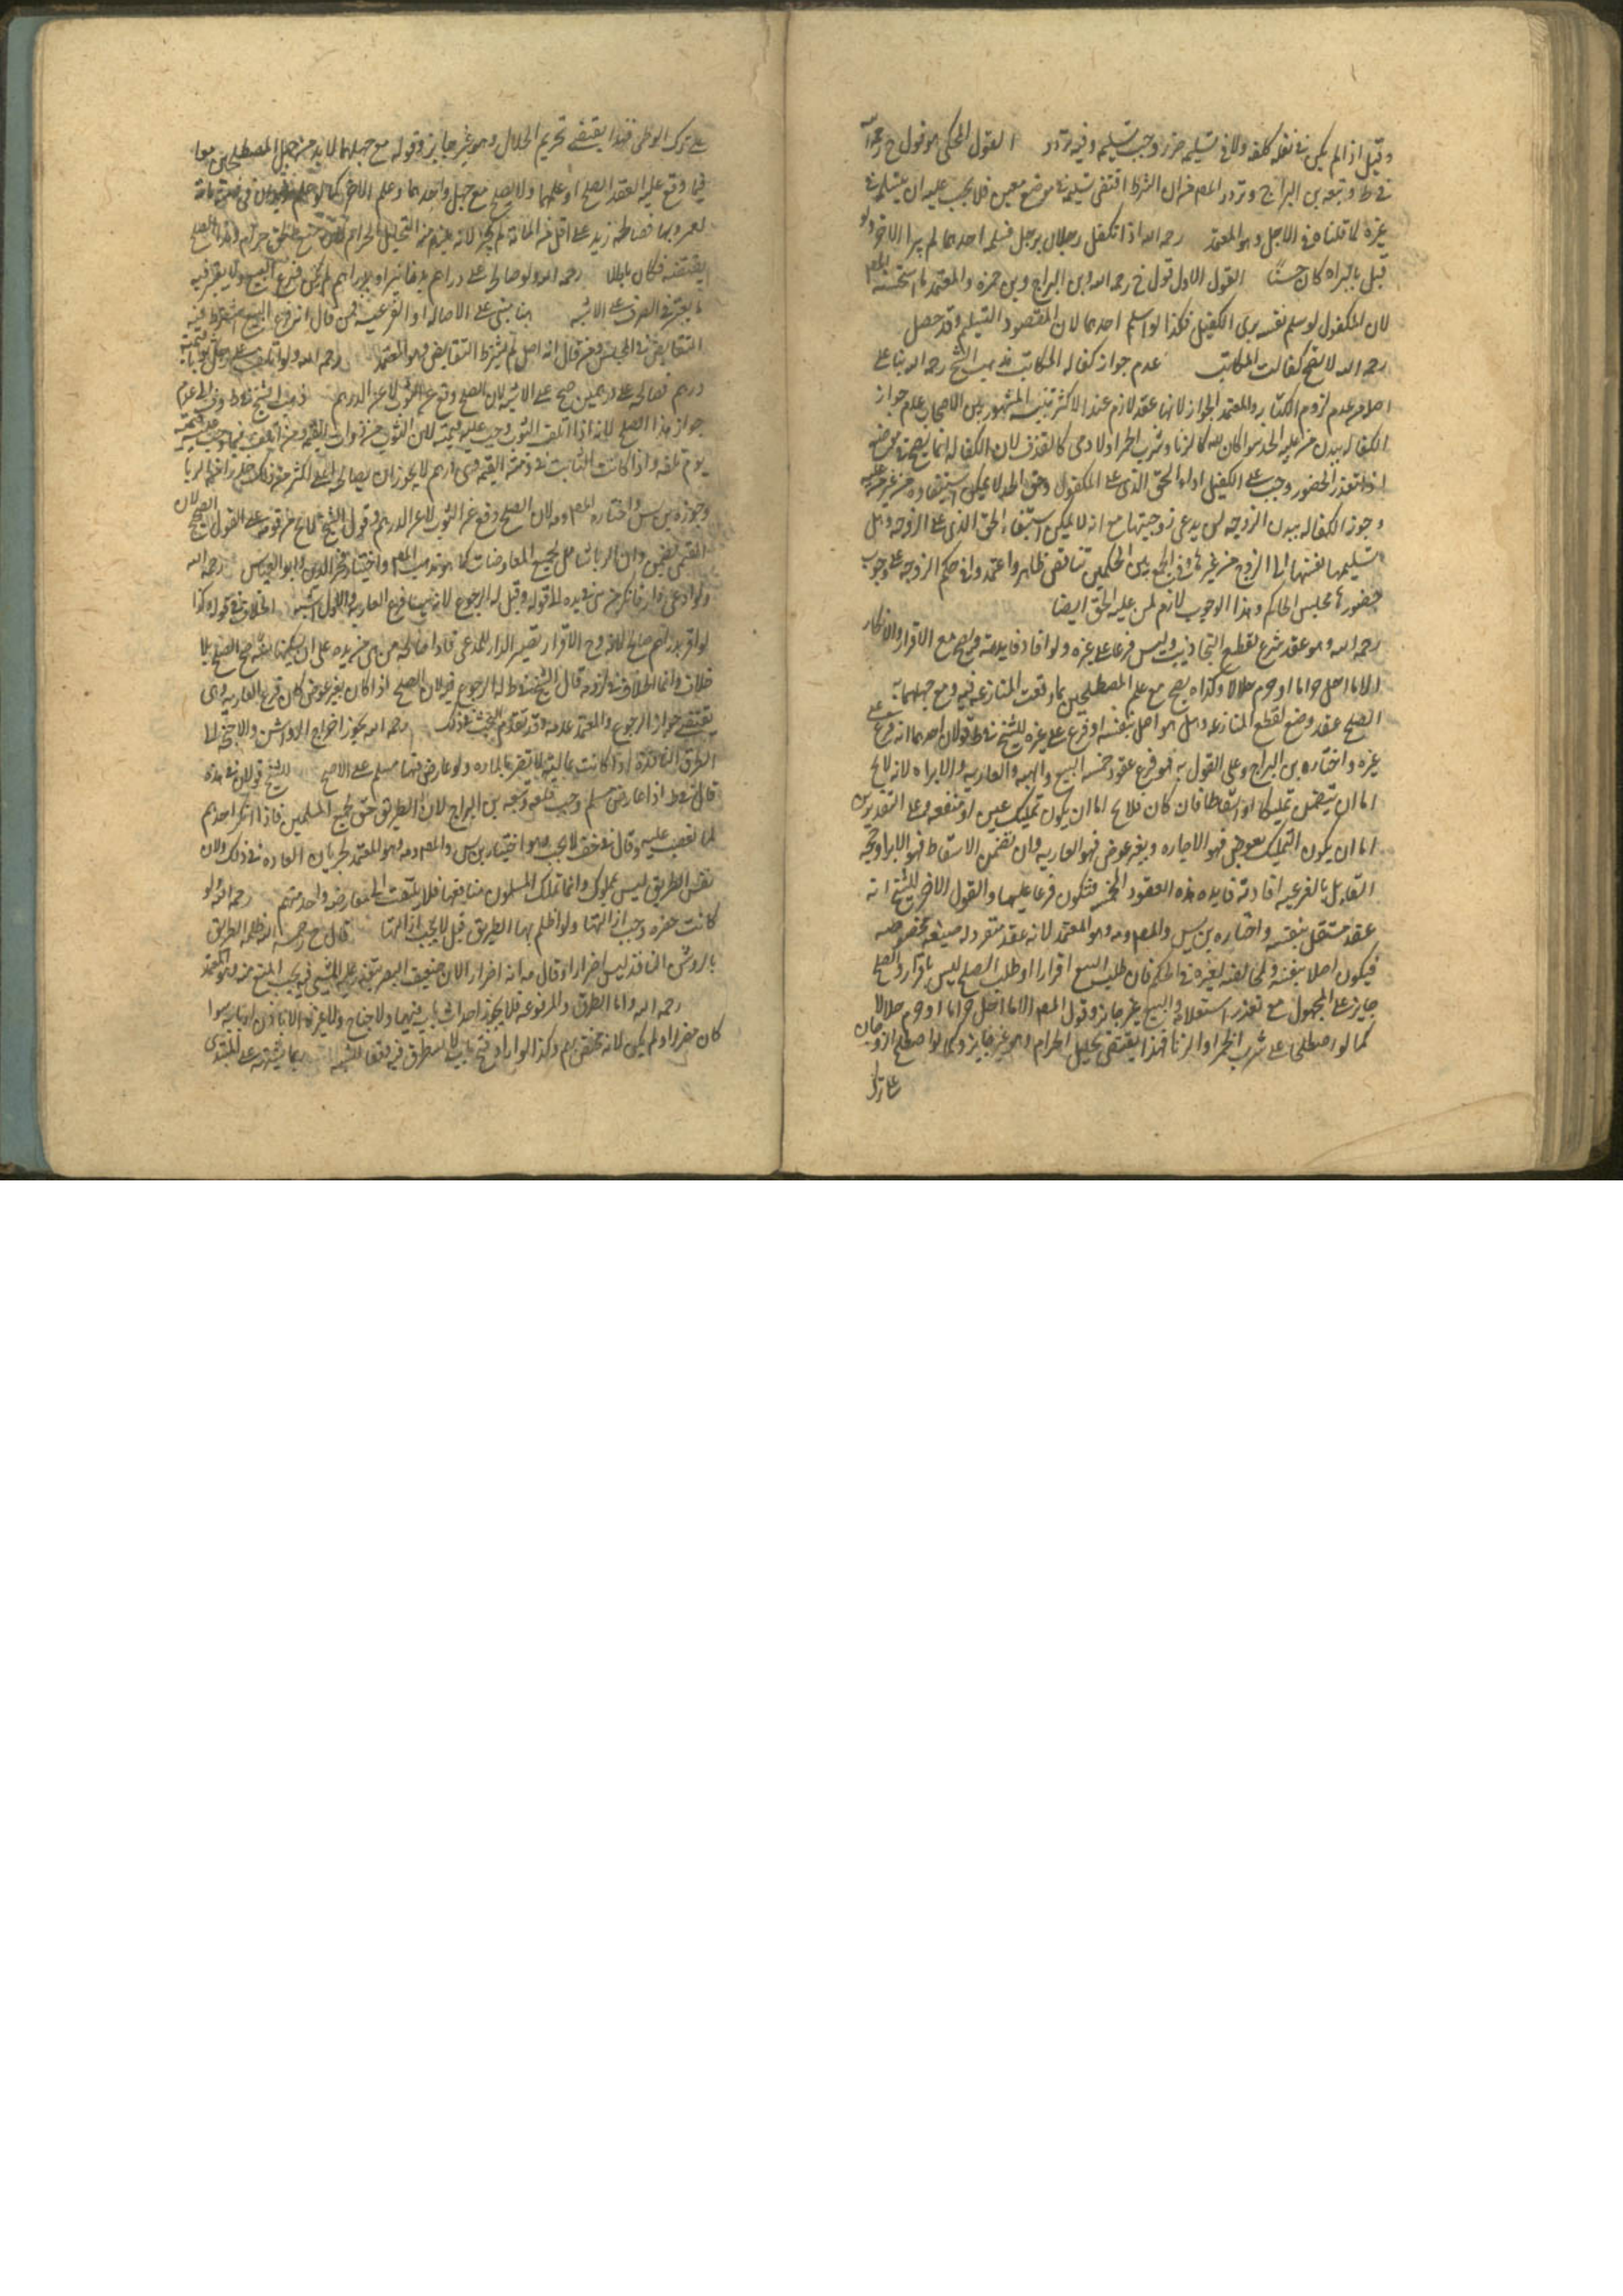 وقيل اذا لم يكن في نقله كلفه ولا في تسليمه ضرر وجب تسليمه وفيه تردد القول المحكي هو قول خ رحمه الله
في ط وتبعه بن البراج وتردد المصم من ان الشرط اقتضى تسليمه في موضع معين فلا يجب عليه ان يتسلمه في
غيره لما قلناه في الاجل وهو المعتمد رحمه الله اذا تكفل رجلان برجل فسلمه احدهما لم يبرا الاخر ولو
قيل بالبراه كان حسنا القول الاول قول خ رحمه الله وبن البراج وبن حمزه والمعتمد ما استحسنه المصم
لان المكفول لو سلم نفسه برى الكفيل فكذا لو اسلم احدهما لان المقصود التسليم وقد حصل
رحمه الله لا يصح كفالت المكاتب عدم جواز كفاله المكاتب مذهب الشيخ رحمه الله بنا على
اصله من عدم لزوم الكتابه والمعتمد الجواز لانها عقد لازم عند الاكثر تنبيه المشهور بين الاصحاب عدم جواز
الكفاله ببدن من عليه الحد سوا كان لله كالزنا وشرب الخمر او لادمي كالقذف لان الكفاله انما يصح في موضع
اذا تعذر الحضور وجب على الكفيل اداء الحق الذي على المكفول وحق الحد لا يمكن استيفاوه من غير من عليه
وجوز الكفاله ببدن الزوجه لمن يدعي زوجيتها مع انه لا يمكن استيفاء الحق الذي على الزوجه وهل
تسليمها نفسها الى الزوج من غيرها وفي الجمع بين الحكمين تناقض ظاهر واعتمدوا في حكم الزوجه على وجوب
حضورها مجلس الحاكم وهذا الوجوب لازم لمن عليه الحق ايضا
رحمه الله وهو عقد شرع لقطع التجاذب وليس فرعا على غيره ولو افاد فايدته ويصح مع الاقرار والانكار
الا ما احل حراما او حرم حلالا وكذا يصح مع علم المصطلحين بما وقعت المنازعه فيه ومع جهلهما به
الصلح عقد وضع لقطع المنازعه وهل هو اصل بنفسه او فرع على غيره للشيخ في ط قولان احدهما انه فرع على
غيره واختاره بن البراج وعلى القول به فهو فرع عقود خمسه البيع والهبه والعاريه والابراء لانه لا يخ
اما ان يتضمن تمليكا او اسقاطا فان كان فلا يخ اما ان يكون تمليك عين او منفعه وعلى التقديرين
اما ان يكون التمليك بعوض فهو الاجاره وبغير عوض فهو العاريه وان تضمن الاسقاط فهو الابرا وحجه
القايل بالفرعيه افادته فايده هذه العقود الخمسه فتكون فرعا عليها والقول الاخر للشيخ انه
عقد مستقل بنفسه واختاره بن س والمصم ومه وهو المعتمد لانه عقد منفرد له صيغه مخصوصه
فيكون اصلا بنفسه ولمخالفته لغيره في الحكم فان طلب البيع اقرارا وطلب الصلح ليس باقرار والصلح
جايز على المجهول مع تعذر استعلامه والبيع غير جايز وقول المصم الا ما احل حراما او حرم حلالا
كما لو اصطلحا على شرب الخمر او الزنا فهذا يقتضي تحليل الحرام وهو غير جايز وكما لو اصطلح الزوجان
على ترك
على ترك الوطى فهذا يقتضي تحريم الحلال وهو غير جايز وقوله مع جهلهما لابد من جهل المصطلحين معا
فيما وقع عليه العقد الصلح او علمهما ولا يصلح مع جهل واحدهما وعلم الاخر كما لو علم زيد ان في ذمته مائة
لعمرو بها فصالحه زيد على اقل من المائة لم يجز لانه يلزم منه التحليل الحرام
يقتضيه فكان باطلا رحمه الله ولو صالح على دراهم بدنانير او بدراهم لم يكن فرع البيع ولا يعتبر فيه
ما يعتبر في الصرف على الاشبه هنا مبني على الاصاله او الفرعيه فمن قال انه فرع البيع اشترط فيه
التقابض في المجلس ومن قال انه اصل لم يشترط التقابض وهو المعتمد رحمه الله ولو اتلف على رجل ثوبا قيمته
درهم فصالحه على درهمين صح على الاشبه لان الصلح وقع عن الثوب لا عن الدرهم ذهب الشيخ في ط وف الى عدم
جواز هذا الصلح لانه اذا اتلف الثوب وجب عليه قيمته لان الثوب من ذوات القيم ومن اتلف شيئا وجب عليه قيمته
يوم تلفه واذا كانت الثابت في ذمته القيمه وهي درهم لا يجوز ان يصالحه على اكثر من ذلك
وجوزه بن س واختاره المصم ومه لان الصلح وقع عن الثوب لا عن الدرهم وقول الشيخ لا يخ من قوه على القول الصحيح لان
القيمي يضمن وان الربا شامل لجميع المعاوضات كما هو مذهب المصم واختيار فخر الدين وابو العباس رحمه الله
ولو ادعى دارا فانكر من هي في يده لم الى قوله وقيل له الرجوع لانه هنا فرع العاريه والاول اشبه الخلاف في قوله وكذا
لو اقر بدراهم صالح لانه مع الاقرار تصير الدار للمدعي فاذا صالحه من هي في يده على ان يسكنها سنة صح الصلح بلا
خلاف وانما الخلاف في لزومه قال الشيخ في ط له الرجوع فيه لان الصلح اذا كان بغير عوض كان فرع العاريه وهي
يقتضي جواز الرجوع والمعتمد عدمه وقد تقدم البحث في ذلك رحمه الله يجوز اخراج الرواشن والاجنحه الى
الطرق النافذة اذا كانت عاليه لا تضر بالماره ولو عارض فيها مسلم على الاصح للشيخ قولان في هذه
قال في ط اذا عارض مسلم وجب قلعه وتبعه بن البراج لان الطريق حق لجميع المسلمين فاذا انكر احدهم
لم تغصب عليه وقال في خف لا يجب وهو اختيار بن س والمصم ومه وهو المعتمد لجريان العاده في ذلك ولان
نفس الطريق ليس بمملوك وانما تملك المسلمون منافعها فلا يلتفت الى معارضه واحد منهم رحمه الله ولو
كانت مضره وجب ازالتها ولو اظلم بها الطريق قيل لا يجب ازالتها قال خ رحمه الله ظلمه الطريق
بالروشن النافذ ليس اضرارا وقال مه انه اضرار لان ضعيف البصر يتعذر عليه المشي فيه فيجب المنع منه وهو المعتمد
رحمه الله واما الطرق المرفوعه فلا يجوز احداث باب فيها ولا جناح ولا غيره الا باذن اربابه سوا
كان مضرا او لم يكن لانه مختص بهم وكذا لو اراد فتح باب لا يستطرق فيه دفعا للشبهه